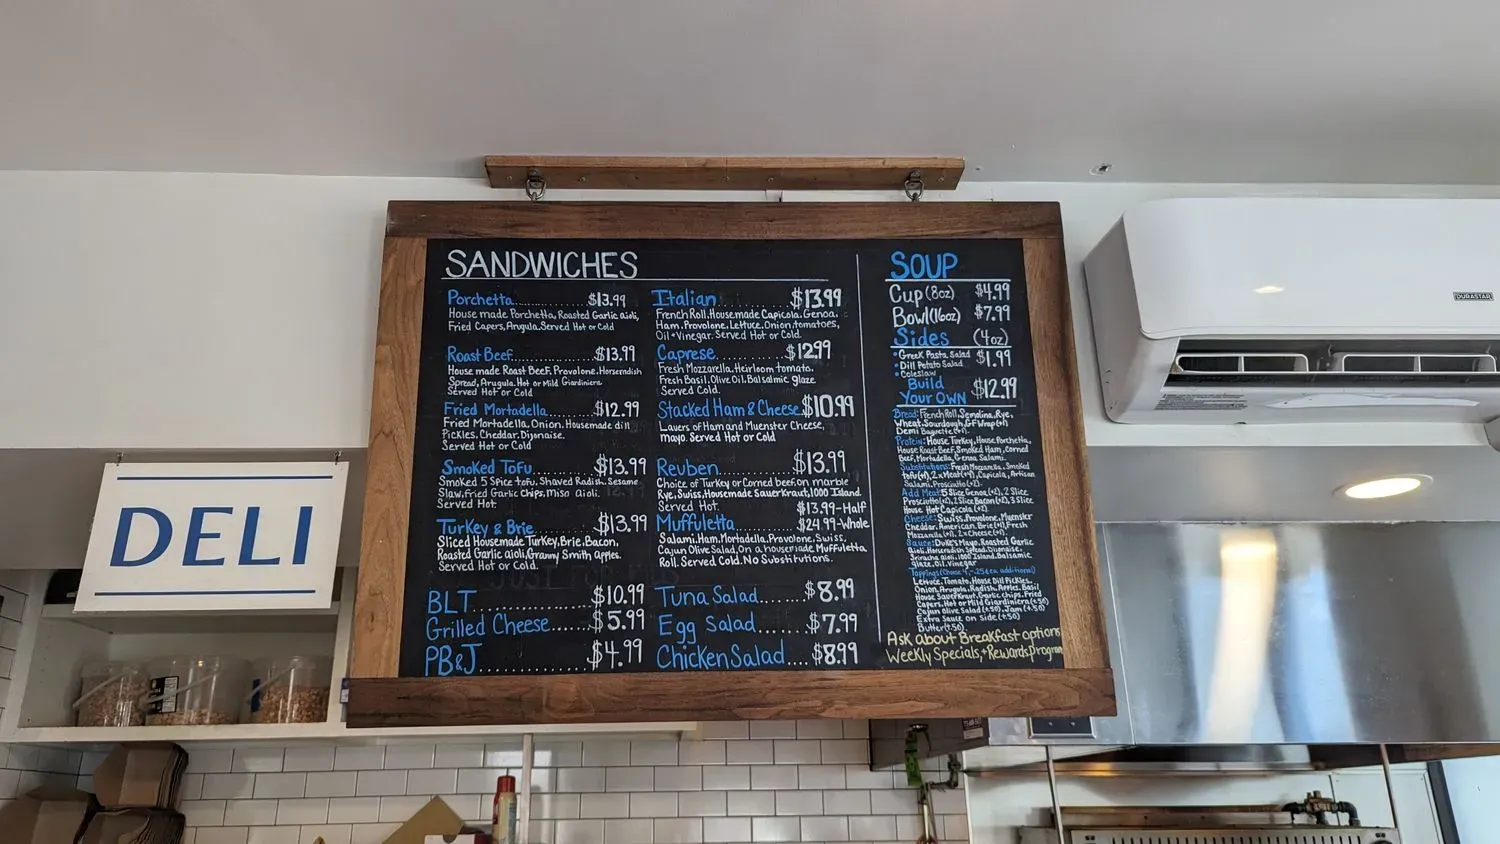 SANDWICHES
Porchetta..............$13.99
House made Porchetta, Roasted Garlic aioli,
Fried Capers, Arugula. Served Hot or Cold
Roast Beef................$13.99
House made Roast Beef, Provolone, Horseradish
Spread, Arugula. Hot or Mild Giardiniera
Served Hot or Cold
Fried Mortadella........$12.99
Fried Mortadella, Onion, Housemade dill
Pickles, Cheddar, Dijonaise.
Served Hot or Cold
Smoked Tofu...........$13.99
Smoked 5 Spice tofu, Shaved Radish, Sesame
Slaw, Fried Garlic Chips, Miso Aioli.
Served Hot.
Turkey & Brie...........$13.99
Sliced Housemade Turkey, Brie, Bacon,
Roasted Garlic aioli, Granny Smith apples.
Served Hot or Cold.
BLT................$10.99
Grilled Cheese......$5.99
PB&J..............$4.99
Italian.............$13.99
French Roll, Housemade Capicola, Genoa,
Ham, Provolone, Lettuce, Onion, tomatoes,
Oil+Vinegar. Served Hot or Cold
Caprese............$12.99
Fresh Mozzarella, Heirloom tomato,
Fresh Basil, Olive Oil, Balsalmic glaze
Served Cold.
Stacked Ham & Cheese..$10.99
Layers of Ham and Muenster Cheese,
mayo. Served Hot or Cold
Reuben.............$13.99
Choice of Turkey or Corned beef on marble
Rye, Swiss, Housemade Sauerkraut, 1000 Island
Served Hot.
$13.99-Half
Muffuletta..........$24.99-Whole
Salami, Ham, Mortadella, Provolone, Swiss,
Cajun Olive Salad, On a housemade Muffuletta
Roll. Served Cold. No Substitutions.
Tuna Salad......$8.99
Egg Salad......$7.99
Chicken Salad....$8.99
SOUP
Cup (8oz) $4.99
Bowl (16oz) $7.99
Sides (4oz)
• Greek Pasta Salad
• Dill Potato Salad $1.99
• Coleslaw
Build
Your Own $12.99
Bread: French Roll, Semolina, Rye,
Wheat, Sourdough, GF Wrap (+1)
Demi Baguette (+1).
Protein: House Turkey, House Porchetta,
House Roast Beef, Smoked Ham, Corned
Beef, Mortadella, Genoa Salami.
Substitutions: Fresh Mozzarella, Smoked
tofu(+1), 2x Meat(+4), Capicola, Artisan
Salami, Prosciutto(+2).
Add Meat: 5 Slice Genoa (+2), 2 Slice
Prosciutto(+2), 2 Slice Bacon(+2), 3 Slice
House Hot Capicola (+2).
Cheese: Swiss, Provolone, Muenster
Cheddar, American, Brie(+1), Fresh
Mozzarella(+1), 2x Cheese(+1).
Sauce: Duke's Mayo, Roasted Garlic
Aioli, Horseradish Spread, Dijonaise,
Sriracha aioli, 1000 Island, Balsamic
glaze, Oil, Vinegar
Toppings (Choose 4, ~25¢ ea. additional)
Lettuce, Tomato, House Dill Pickles,
Onion, Arugula, Radish, Apples, Basil
House Sauerkraut, Garlic chips, Fried
Capers, Hot or Mild Giardiniera(+.50)
Cajun olive Salad (+.50), Jam (+.50)
Extra Sauce on Side (+.50)
Butter(+.50)
Ask about Breakfast options
Weekly Specials, + Rewards Program
DURASTAR
DELI